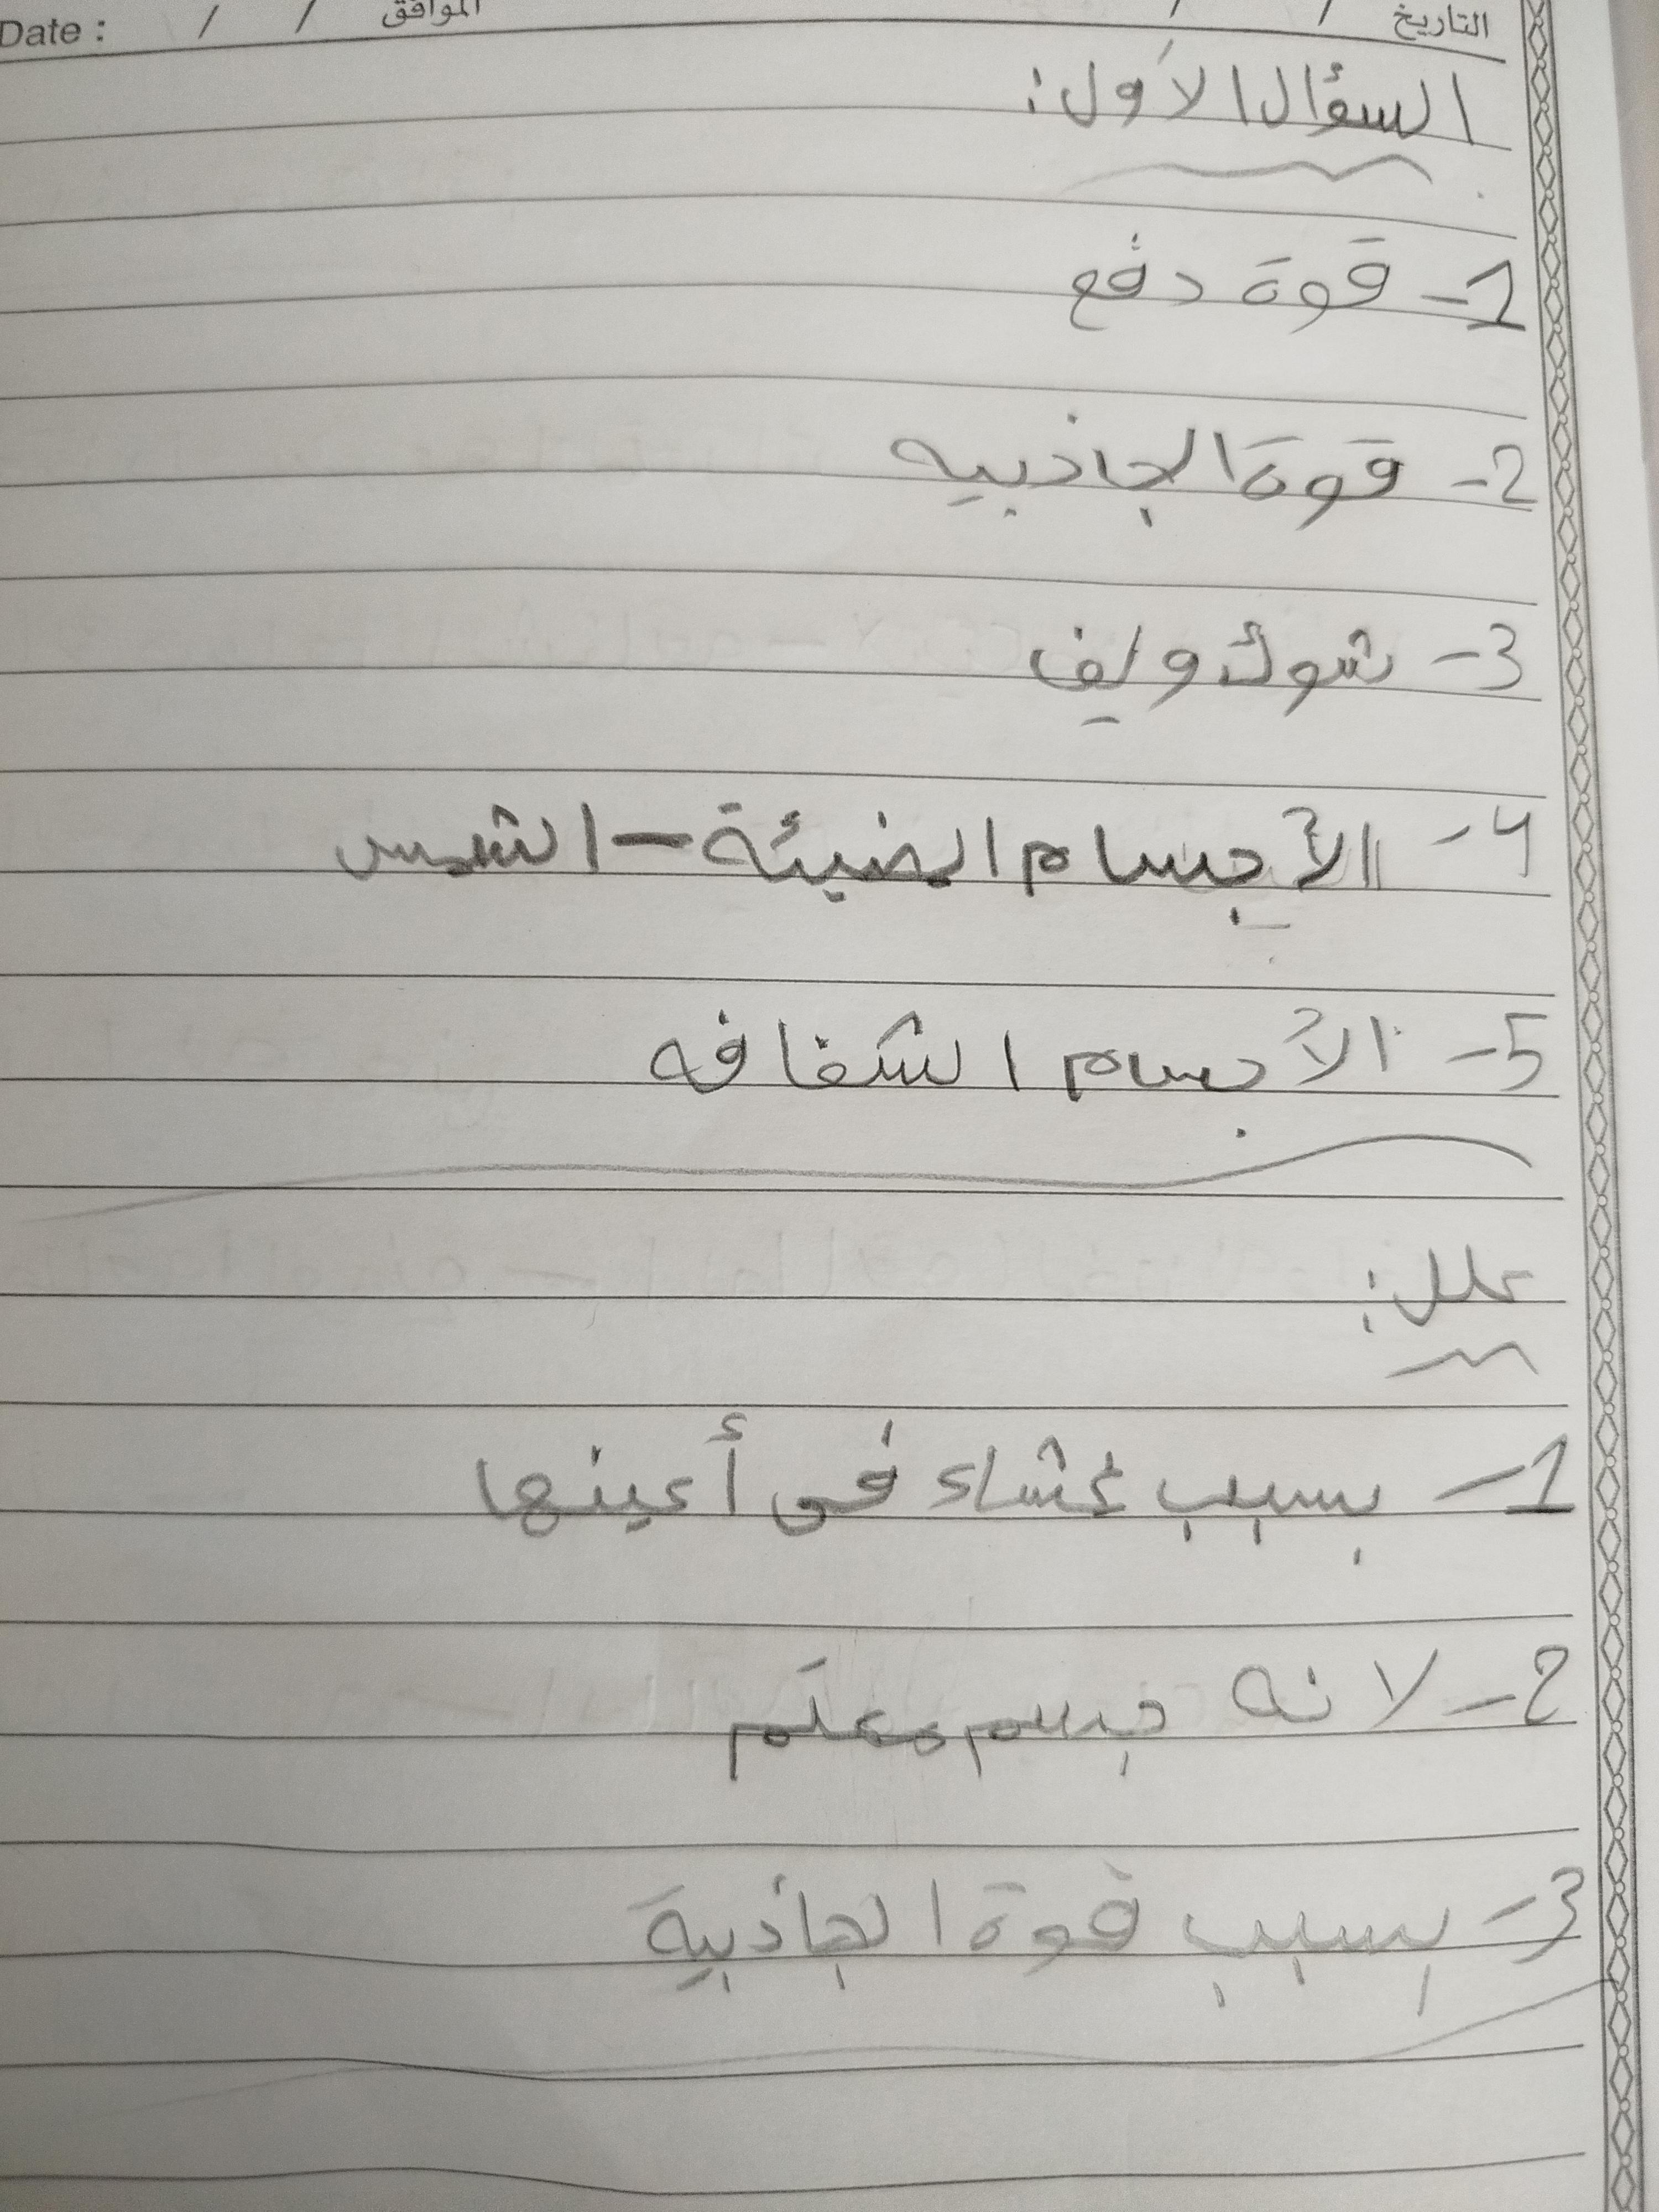 التاريخ / / الموافق / / Date :
السؤال الأول:
1- قوة دفع
2- قوة الجاذبيه
3- شوك وليف
4- الأجسام المضيئة - الشمس
5- الأجسام الشفافه
علل:
1- بسبب غشاء فى أعينها
2- لانه جسم معتم
3- بسبب قوة الجاذبية